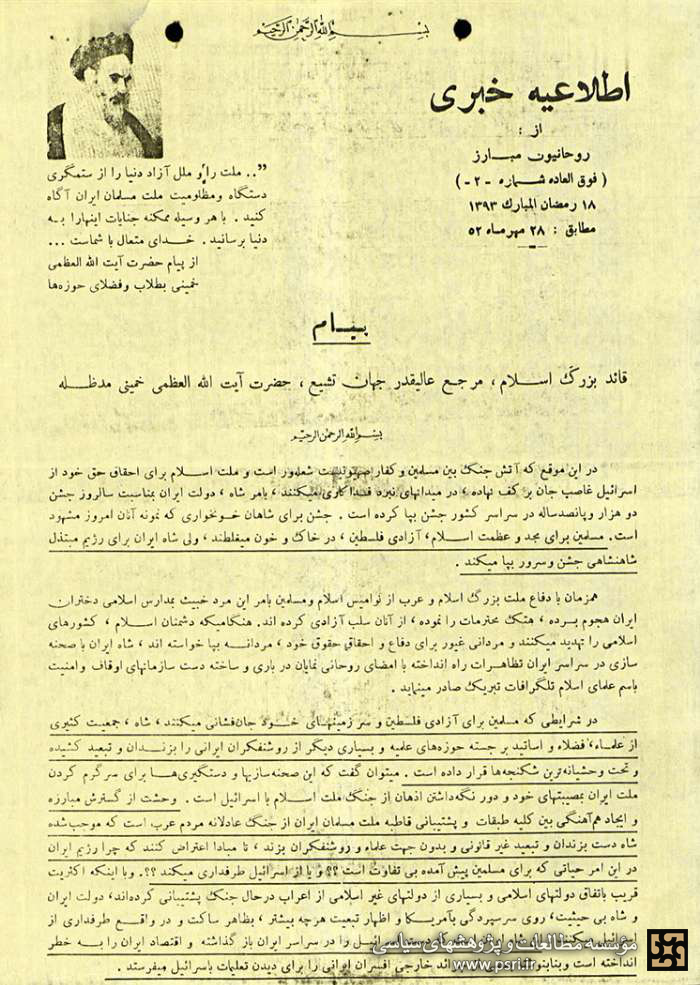 بسم الله الرحمن الرحیم
اطلاعیه خبری
از :
روحانیون مبارز
( فوق العاده شماره - ۲ - )
۱۸ رمضان المبارک ۱۳۹۳
مطابق : ۲۸ مهرماه ۵۲
„.. ملت را و ملل آزاد دنیا را از ستمگری
دستگاه و مظلومیت ملت مسلمان ایران آگاه
کنید . با هر وسیله ممکنه جنایات اینها را به
دنیا برسانید . خدای متعال با شماست ...
از پیام حضرت آیت الله العظمی
خمینی بطلاب وفضلای حوزه‌ها
پیام
قائد بزرگ اسلام ، مرجع عالیقدر جهان تشیع ، حضرت آیت الله العظمی خمینی مدظله
بسم الله الرحمن الرحیم
در این موقع که آتش جنگ بین مسلمین و کفار صهیونیست شعله‌ور است و ملت اسلام برای احقاق حق خود از
اسرائیل غاصب جان بر کف نهاده ، در میدانهای نبرد فداکاری میکنند ، بامر شاه ، دولت ایران بمناسبت سالروز جشن
دو هزار و پانصد ساله در سراسر کشور جشن بپا کرده است . جشن برای شاهان خونخواری که نمونه آنان امروز مشهود
است . مسلمین برای مجد و عظمت اسلام ، آزادی فلسطین ، در خاک و خون میغلطند ، ولی شاه ایران برای رژیم مبتذل
شاهنشاهی جشن وسرور بپا میکند .
همزمان با دفاع ملت بزرگ اسلام و عرب از نوامیس اسلام ومسلمین بامر این مرد خبیث بمدارس اسلامی دختران
ایران هجوم برده ، هتک محترمات را نموده ، از آنان سلب آزادی کرده اند. هنگامیکه دشمنان اسلام ، کشورهای
اسلامی را تهدید میکنند و مردانی غیور برای دفاع و احقاق حقوق خود ، مردانه بپا خواسته اند ، شاه ایران با صحنه
سازی در سراسر ایران تظاهرات راه انداخته با امضای روحانی نمایان در باری و ساخته دست سازمانهای اوقاف وامنیت
باسم علمای اسلام تلگرافات تبریک صادر مینماید .
در شرایطی که مسلمین برای آزادی فلسطین و سر زمینهای خود جان‌فشانی میکنند ، شاه ، جمعیت کثیری
از علماء ، فضلاء و اساتید بر جسته حوزه‌های علمیه و بسیاری دیگر از روشنفکران ایرانی را بزندان و تبعید کشیده
و تحت وحشیانه‌ترین شکنجه‌ها قرار داده است . میتوان گفت که این صحنه‌سازیها و دستگیری‌ها برای سرگرم کردن
ملت ایران بمصیبتهای خود و دور نگه‌داشتن اذهان از جنگ ملت اسلام با اسرائیل است . وحشت از گسترش مبارزه
و ایجاد هم‌آهنگی بین کلیه طبقات و پشتیبانی قاطبه ملت مسلمان ایران از جنگ عادلانه مردم عرب است که موجب‌شده
شاه دست بزندان و تبعید غیر قانونی و بدون جهت علماء و روشنفکران بزند ، تا مبادا اعتراض کنند که چرا رژیم ایران
در این امر حیاتی که برای مسلمین پیش آمده بی تفاوت است ؟؟ و یا از اسرائیل طرفداری میکند ؟؟. وبا اینکه اکثریت
قریب باتفاق دولتهای اسلامی و بسیاری از دولتهای غیر اسلامی از اعراب درحال جنگ پشتیبانی کرده‌اند، دولت ایران
و شاه بی حیثیت، روی سرسپردگی بآمریکا و اظهار تبعیت هرچه بیشتر ، بظاهر ساکت و در واقع طرفداری از
اسرائیل میکنند . شاه دست اسرائیل را در سراسر ایران باز گذاشته و اقتصاد ایران را به خطر
انداخته است خارجی افسران ایرانی را برای دیدن تعلیمات باسرائیل میفرستد .
مؤسسه مطالعات و پژوهشهای سیاسی
www.psri.ir